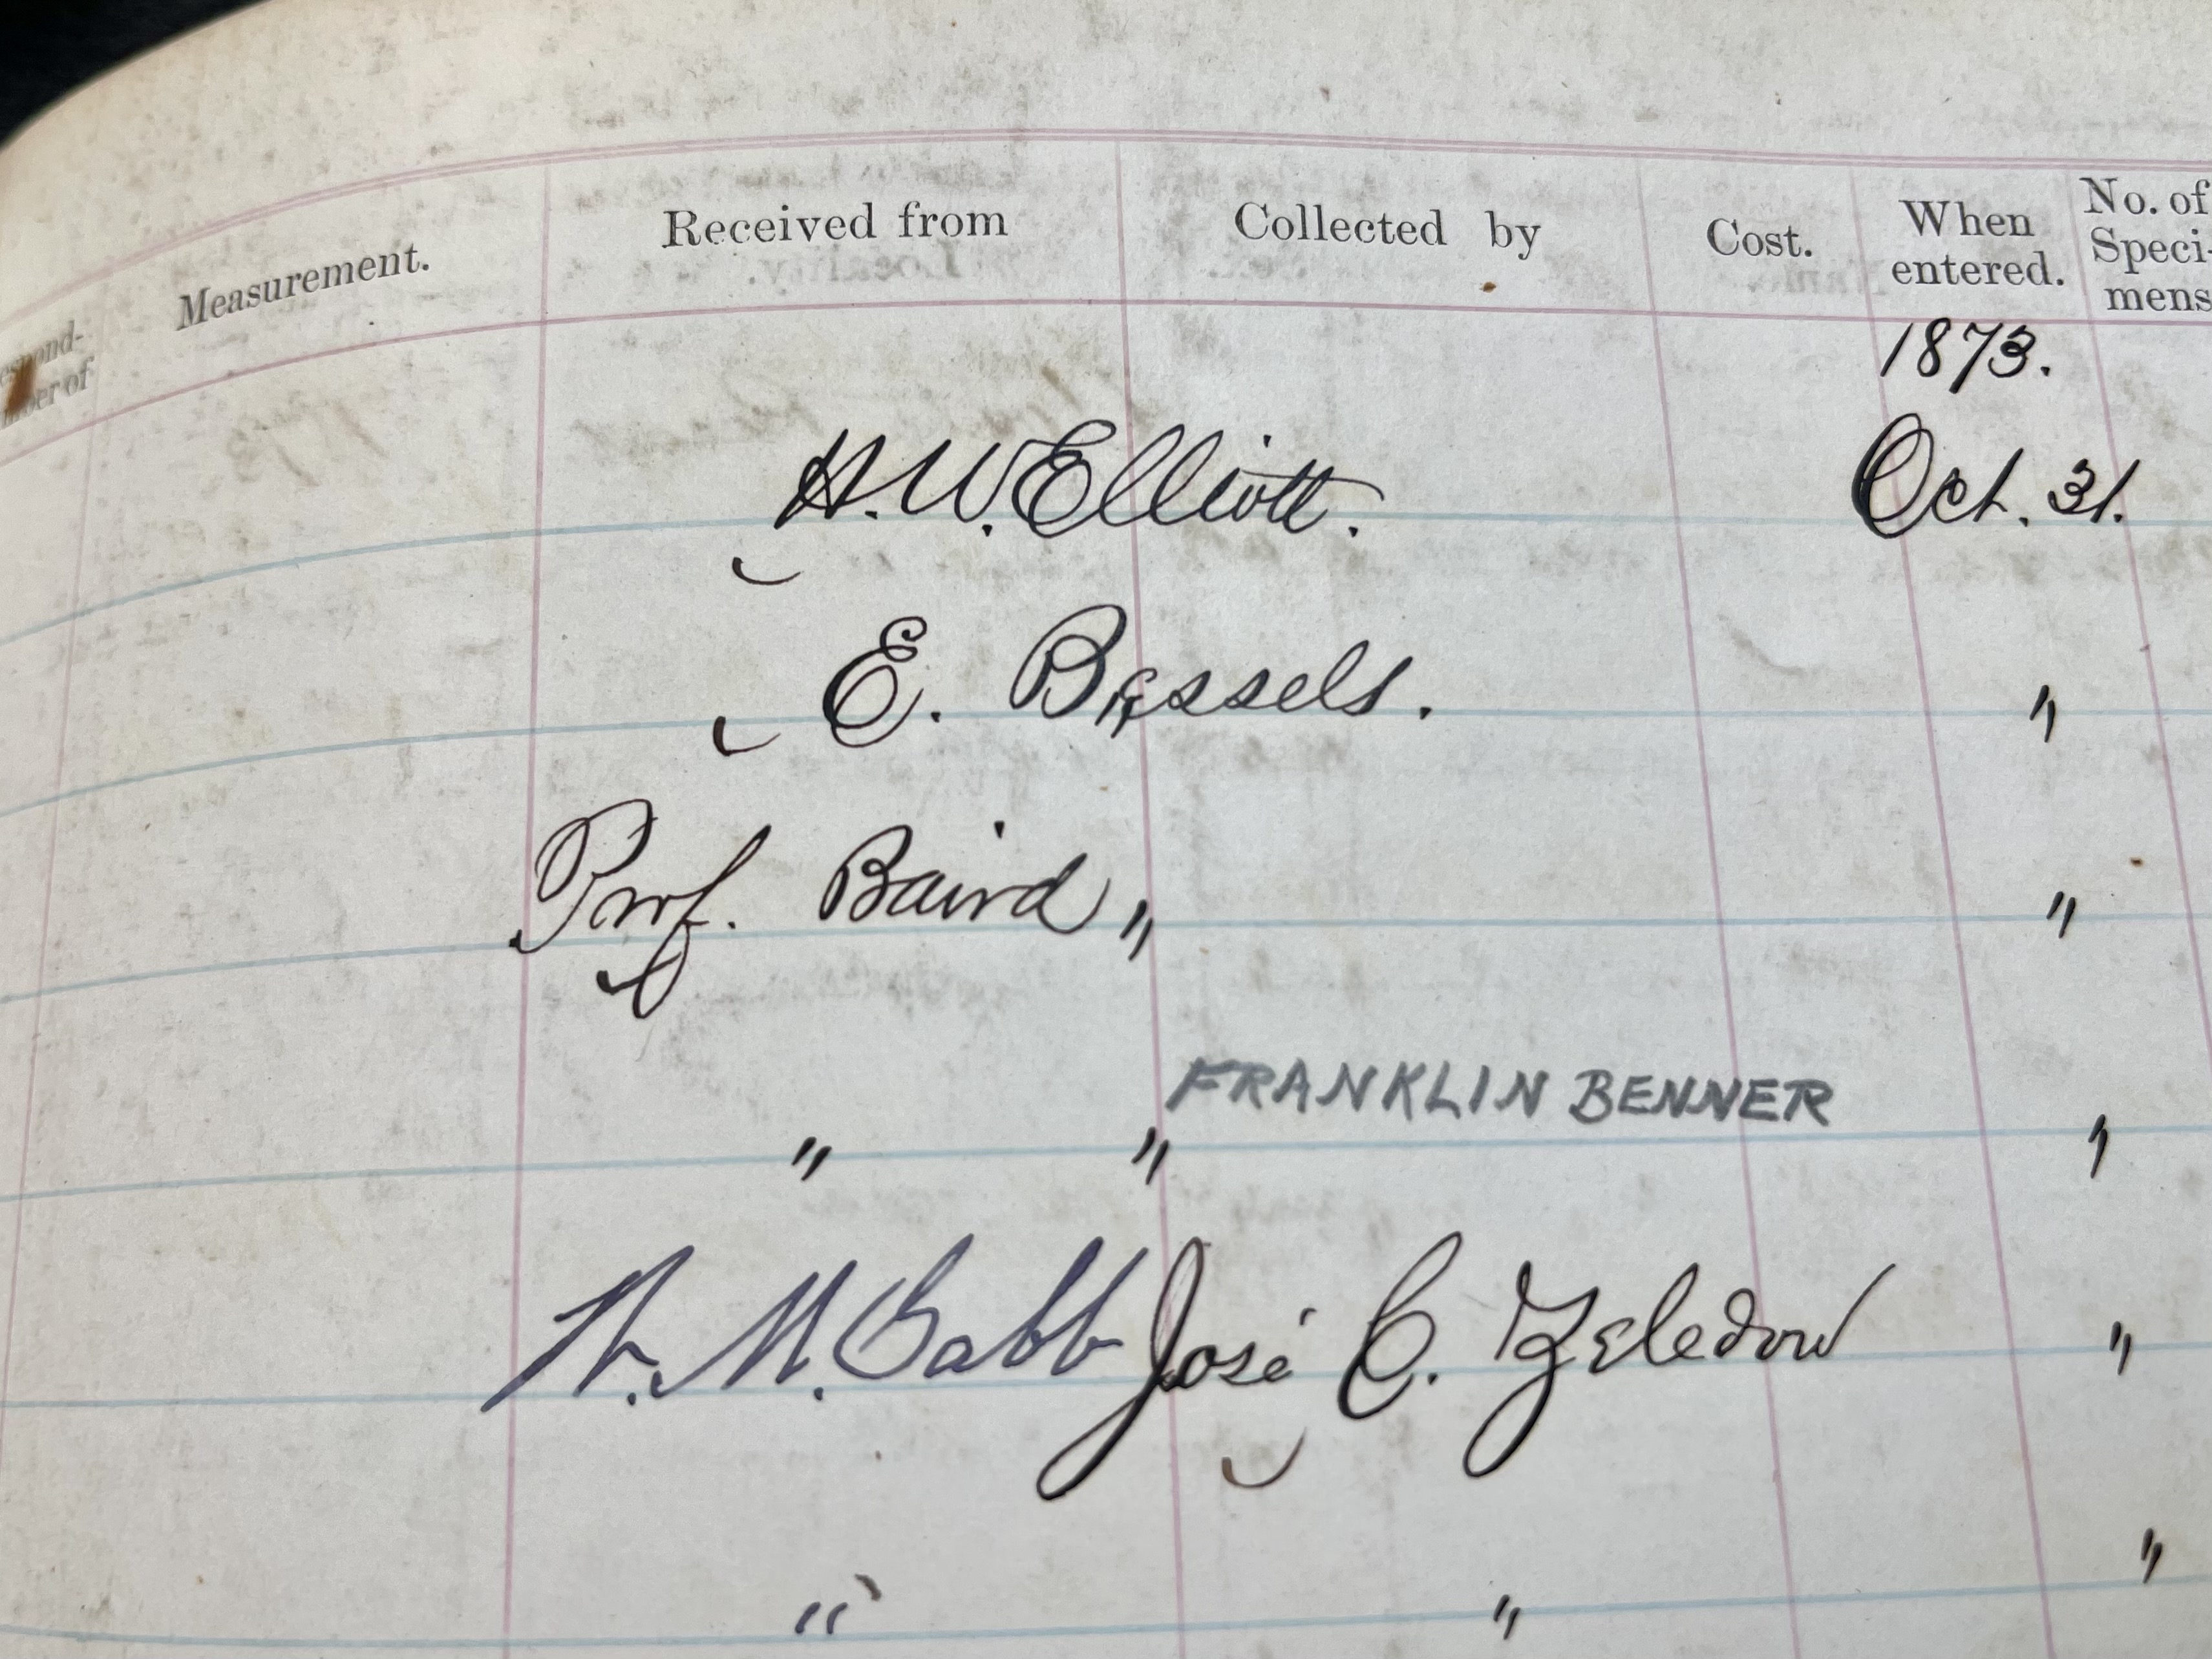 Measurement. Received from Collected by Cost. When entered. No. of Speci-mens
1873.
H. W. Elliott. Oct. 31.
E. Bessels. "
Prof. Baird " "
" " FRANKLIN BENNER "
W. M. Gabb José C. Zeledon "
" " "